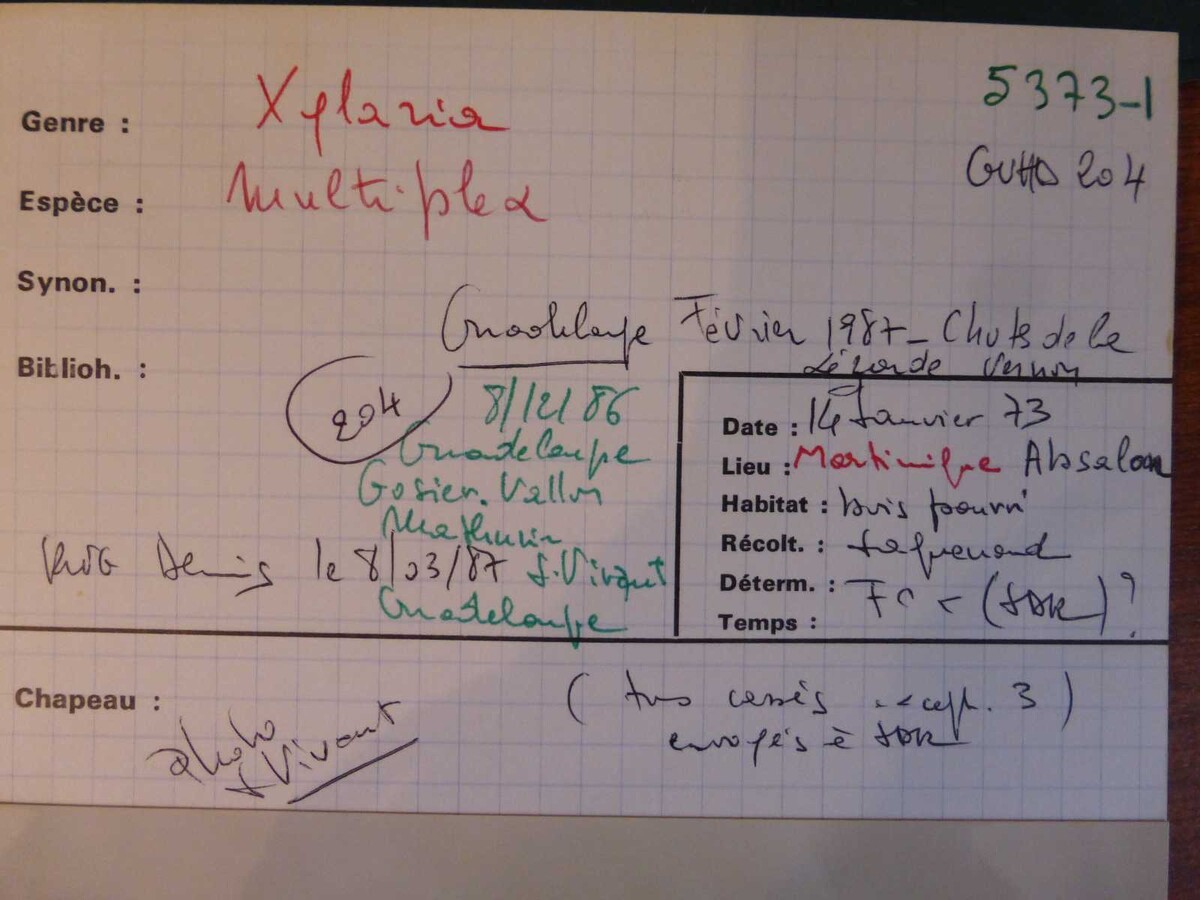 5373-1
Genre : Xylaria
GUAD 204
Espèce : Multiplex
Synon. :
Guadeloupe Février 1987 - Chute de la
Lézarde Vernou
Biblioh. :
204
8/12/86
Guadeloupe
Gosier. Vallon
Mathurin
Denis le 8/03/87 J. Vivant
Guadeloupe
Date : 14 Janvier 73
Lieu : Martinique Absalon
Habitat : bois pourri
Récolt. :
Déterm. : FC (SDR) ?
Temps :
Chapeau :
photo
J Vivant
( tous cassés except. 3 )
envoyés à SDR